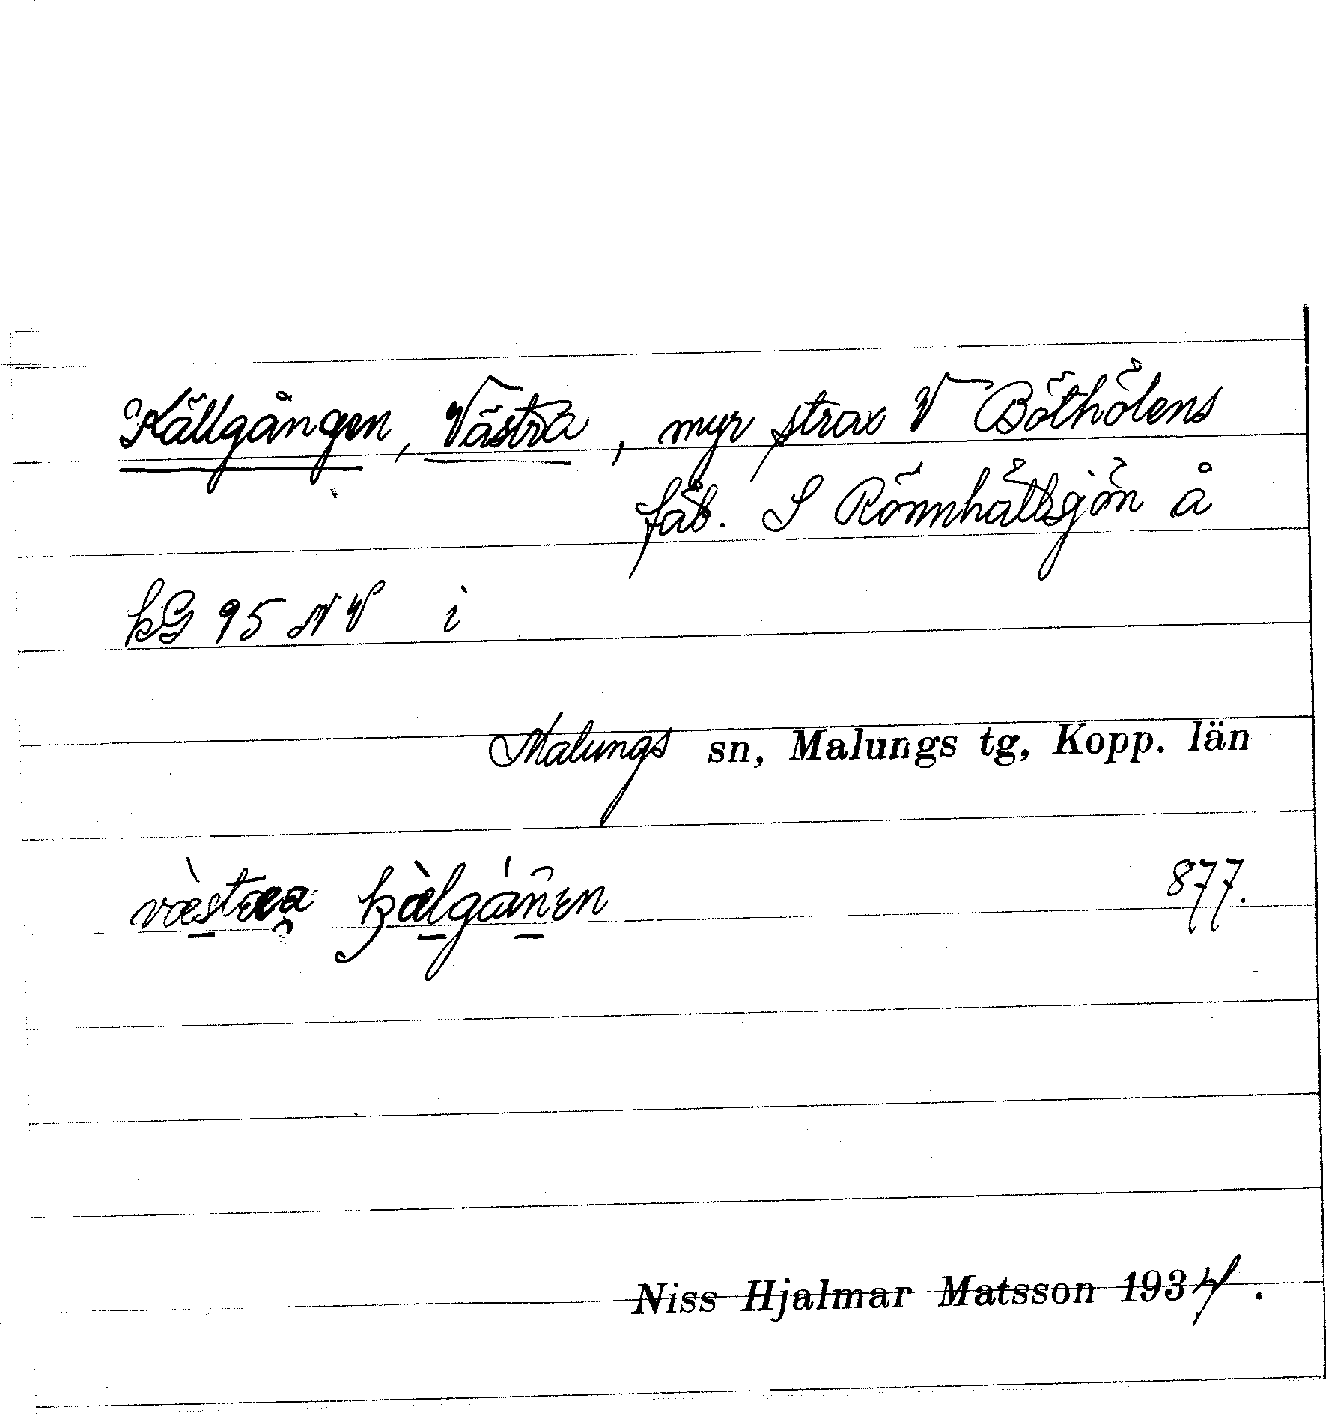 Källgången, Västra, myr strax V Böthölens
fäb. S Rönnhåttsjön å
kG 95 NV i
Malungs sn, Malungs tg, Kopp. län
877.
Niss Hjalmar Matsson 1934.